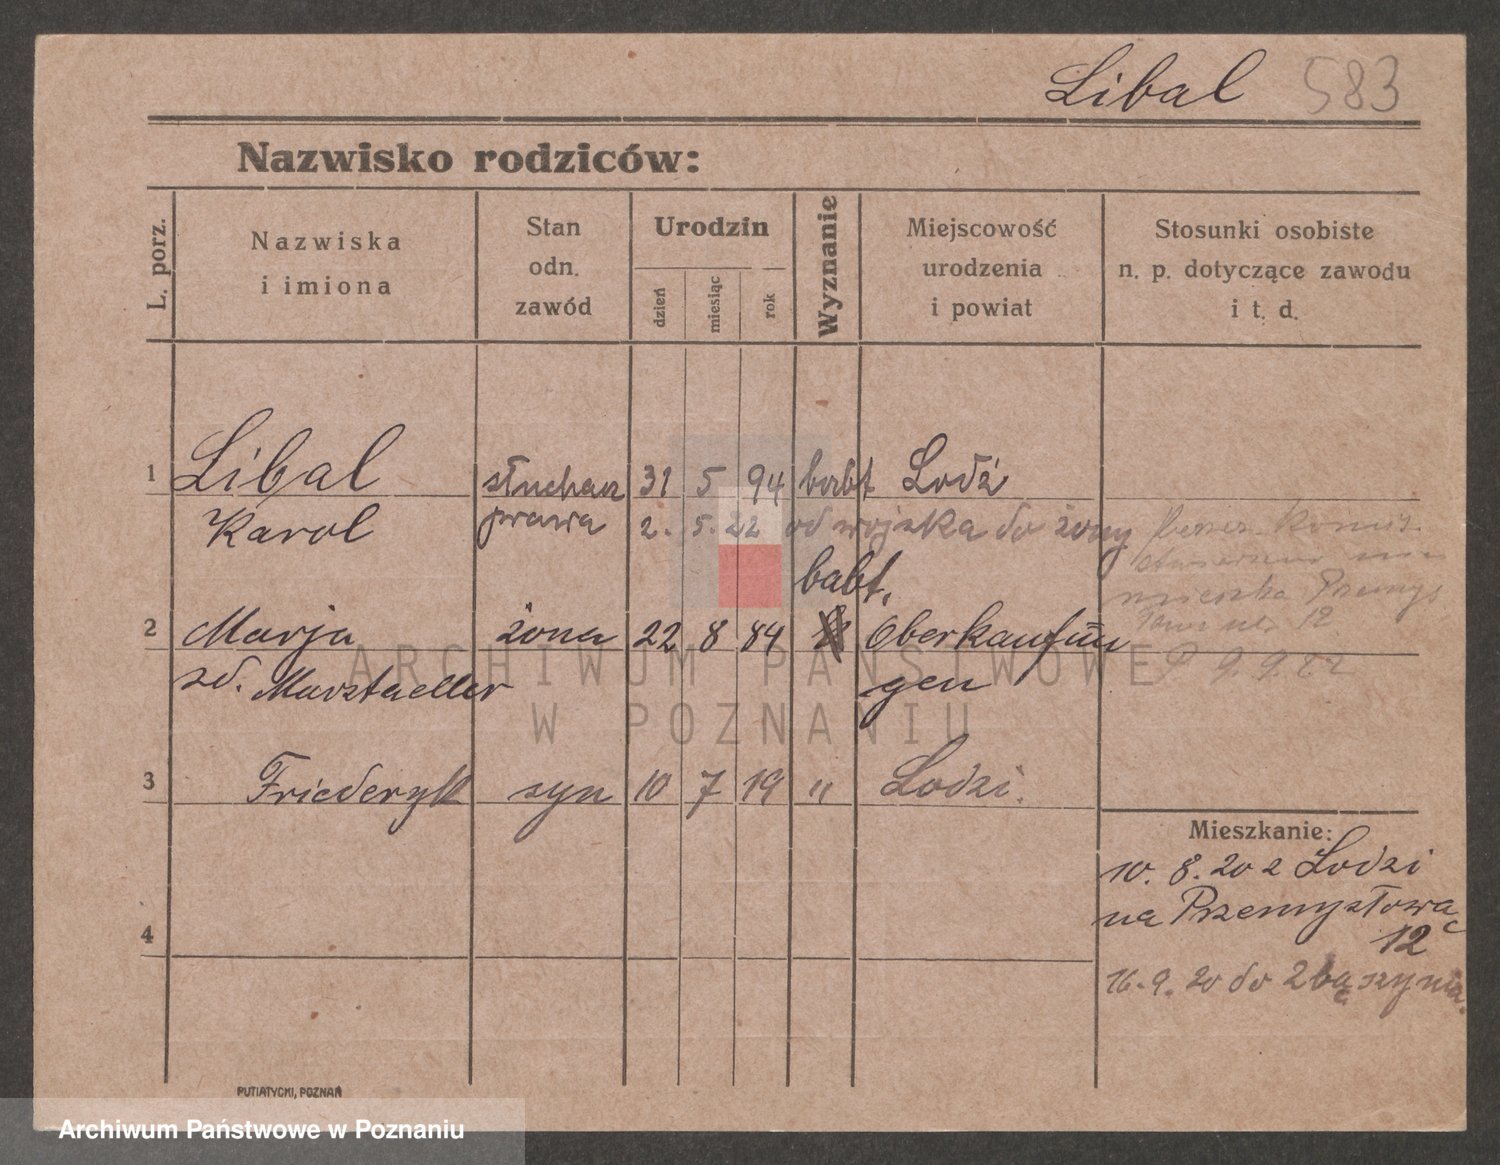 Libal 583
Nazwisko rodziców:
L. porz.
Nazwiska
i imiona
Stan
odn.
zawód
Urodzin
dzień
miesiąc
rok
Wyznanie
Miejscowość
urodzenia
i powiat
Stosunki osobiste
n. p. dotyczące zawodu
i t. d.
1 Libal słuchacz 31 5 94 babt Lodź
Karol prawa 2. 5. 22 od wojska do żony
babt.
2 Marja żona 22 8 84 Oberkaufun
zd. Marstaeller gen
mieszka Przemys
12
9.9.22
3 Friederyk syn 10 7 19 " Lodzi.
4
Mieszkanie:
10. 8. 20 z Lodzi
na Przemysłową
12
16. 9. 20 do Zbąszynia.
PUTIATYCKI, POZNAŃ
ARCHIWUM PAŃSTWOWE
W POZNANIU
Archiwum Państwowe w Poznaniu